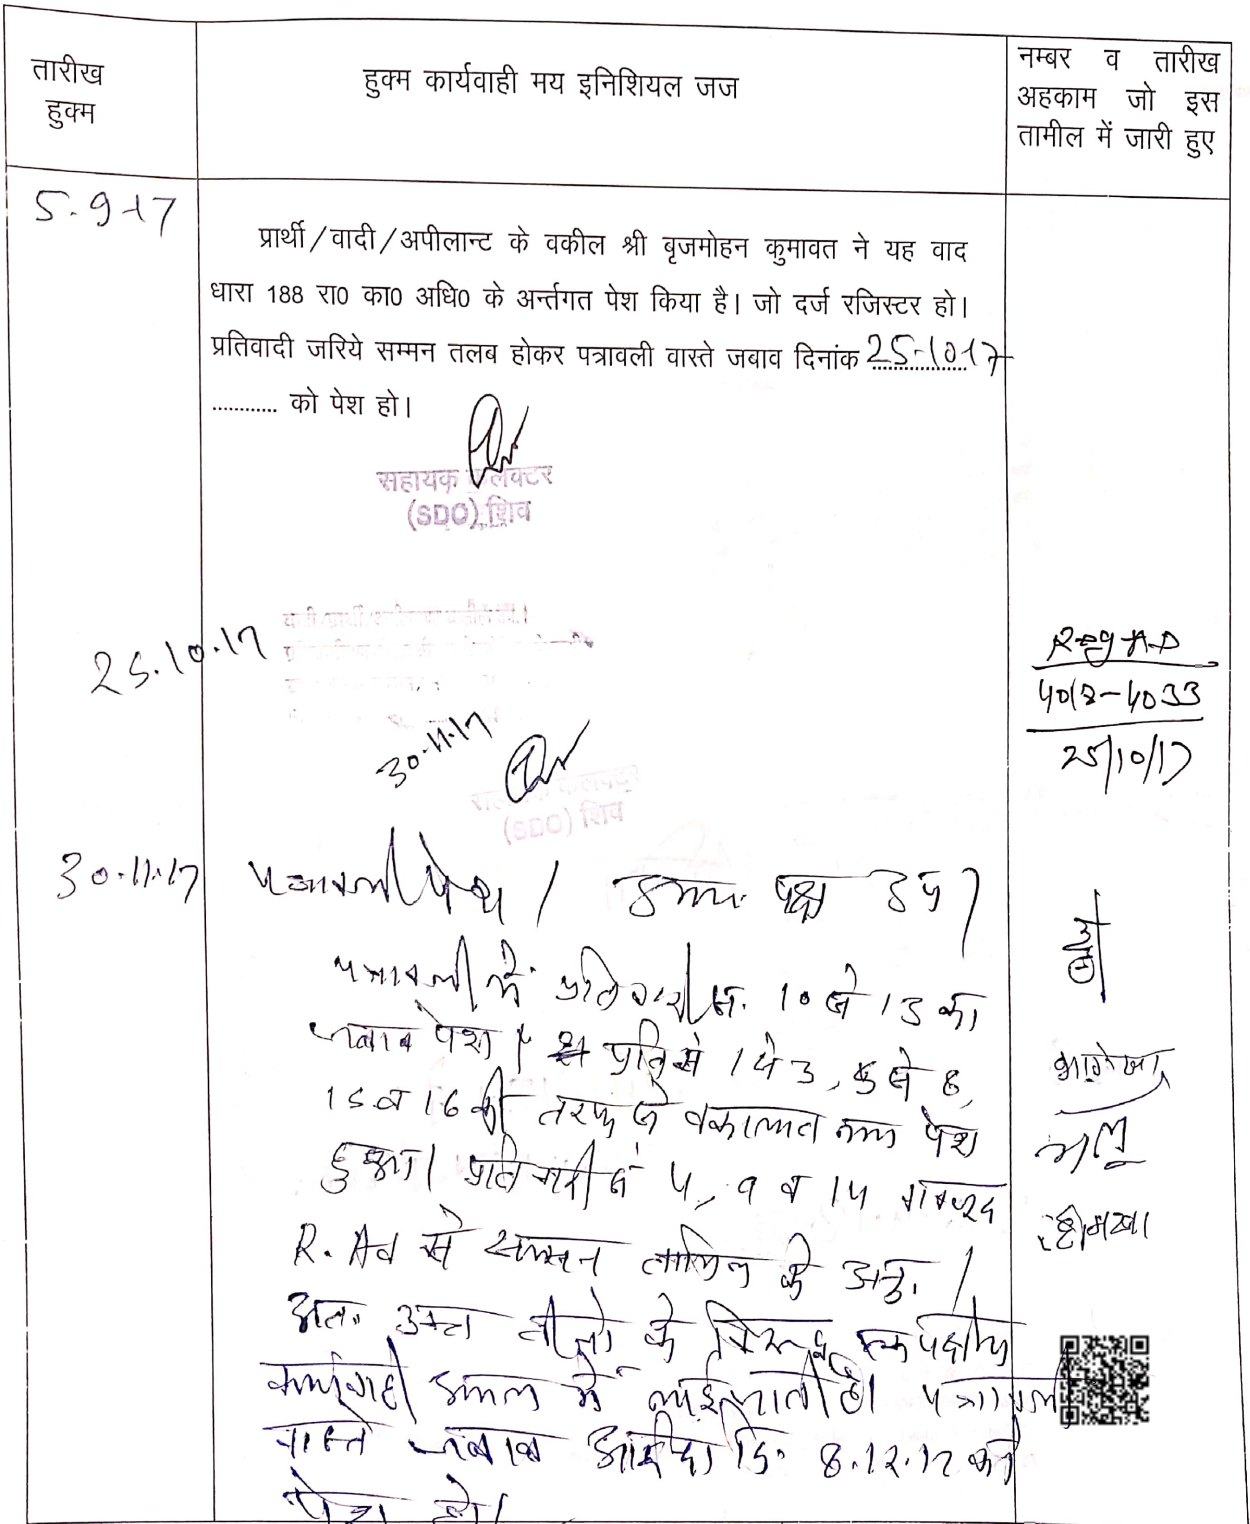 तारीख
हुक्म
हुक्म कार्यवाही मय इनिशियल जज
नम्बर व तारीख
अहकाम जो इस
तामील में जारी हुए
5.9.17
प्रार्थी/वादी/अपीलान्ट के वकील श्री बृजमोहन कुमावत ने यह वाद
धारा 188 रा0 का0 अधि0 के अर्न्तगत पेश किया है। जो दर्ज रजिस्टर हो।
प्रतिवादी जरिये सम्मन तलब होकर पत्रावली वास्ते जबाव दिनांक 25.10.17
............ को पेश हो।
सहायक कलेक्टर
(SDO) शिव
25.10.17
30.11.17
(SDO) शिव
Reg AD
4018-4033
25/10/17
30.11.17
पत्रावली पेश। उभय पक्ष उप।
पत्रावली में प्रतिवादी सं. 10 से 13 का
जवाब पेश। प्रति सं 1 से 3, 5 से 8,
15 व 16 की तरफ से वकालात नामा पेश
हुआ। प्रतिवादी सं 4, 9 व 14 बावजूद
R. AD से सम्मन तामिल के अनु.।
अतः उक्त तीनों के विरूद्ध एक पक्षीय
कार्यवाही अमल में लाई जाती है। पत्रावली
वास्ते जवाब आईंदा दि. 8.12.17 को
पेश हो।